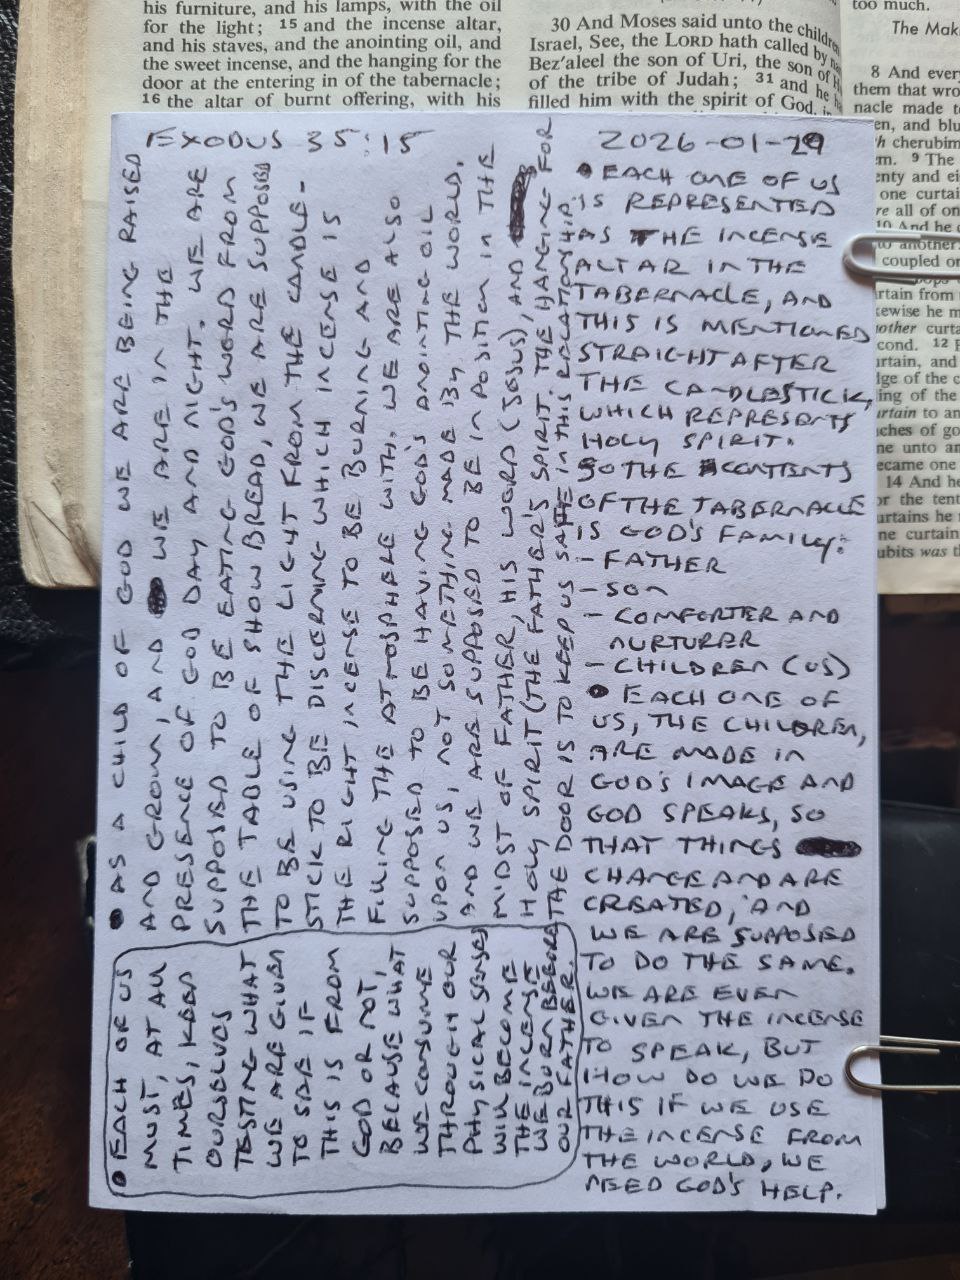 his furniture, and his lamps, with the oil
for the light; 15 and the incense altar,
and his staves, and the anointing oil, and
the sweet incense, and the hanging for the
door at the entering in of the tabernacle;
16 the altar of burnt offering, with his
30 And Moses said unto the children
Israel, See, the LORD hath called by
Bez′aleel the son of Uri, the son of
of the tribe of Judah; 31 and he
filled him with the spirit of God, in
too much.
The Mak
8 And every
them that wro
nacle made
en, and blu
cherubim
m. 9 The
enty and ei
one curtai
re all of on
10 And he c
to another
coupled on
rtain from
kewise he m
nother curta
cond. 12 F
urtain, and
dge of the c
ing of the
urtain to an
ches of go
ne unto an
ecame one
14 And he
or the tent
urtains he
ne curtain
ubits was th
EXODUS 35:15
2026-01-29
• EACH ONE OF US
IS REPRESENTED
AS THE INCENSE
ALTAR IN THE
TABERNACLE, AND
THIS IS MENTIONED
STRAIGHT AFTER
THE CANDLESTICK,
WHICH REPRESENTS
HOLY SPIRIT.
SO THE CONTENTS
OF THE TABERNACLE
IS GOD'S FAMILY:
- FATHER
- SON
- COMFORTER AND
NURTURER
- CHILDREN (US)
• EACH ONE OF
US, THE CHILDREN,
ARE MADE IN
GOD'S IMAGE AND
GOD SPEAKS, SO
THAT THINGS
CHANGE AND ARE
CREATED, AND
WE ARE SUPPOSED
TO DO THE SAME.
WE ARE EVEN
GIVEN THE INCENSE
TO SPEAK, BUT
HOW DO WE DO
THIS IF WE USE
THE INCENSE FROM
THE WORLD, WE
NEED GOD'S HELP.
• AS A CHILD OF GOD WE ARE BEING RAISED
AND GROWN, AND WE ARE IN THE
PRESENCE OF GOD DAY AND NIGHT. WE ARE
SUPPOSED TO BE EATING GOD'S WORD FROM
THE TABLE OF SHOWBREAD, WE ARE SUPPOSED
TO BE USING THE LIGHT FROM THE CANDLE-
STICK TO BE DISCERNING WHICH INCENSE IS
THE RIGHT INCENSE TO BE BURNING AND
FILLING THE ATMOSPHERE WITH. WE ARE ALSO
SUPPOSED TO BE HAVING GOD'S ANOINTING OIL
UPON US, NOT SOMETHING MADE BY THE WORLD.
AND WE ARE SUPPOSED TO BE IN POSITION IN THE
MIDST OF FATHER, HIS WORD (JESUS), AND
HOLY SPIRIT (THE FATHER'S SPIRIT. THE HANGING FOR
THE DOOR IS TO KEEP US SAFE IN THIS RELATIONSHIP.
• EACH OF US
MUST, AT ALL
TIMES, KEEP
OURSELVES
TESTING WHAT
WE ARE GIVEN
TO SEE IF
THIS IS FROM
GOD OR NOT,
BECAUSE WHAT
WE CONSUME
THROUGH OUR
PHYSICAL SENSES
WILL BECOME
THE INCENSE
WE BURN BEFORE
OUR FATHER.